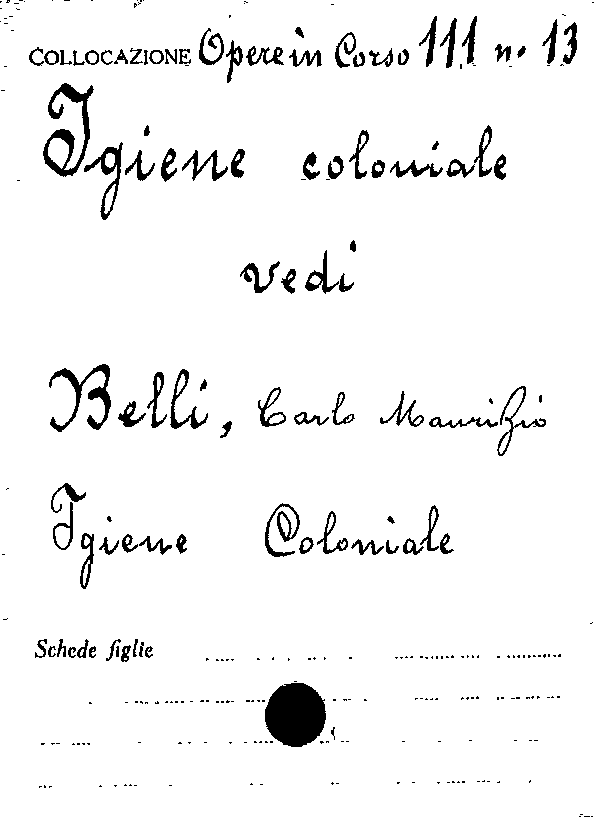 COLLOCAZIONE Opere in Corso 111 n. 13
Igiene coloniale
vedi
Belli, Carlo Maurizio
Igiene Coloniale
Schede figlie